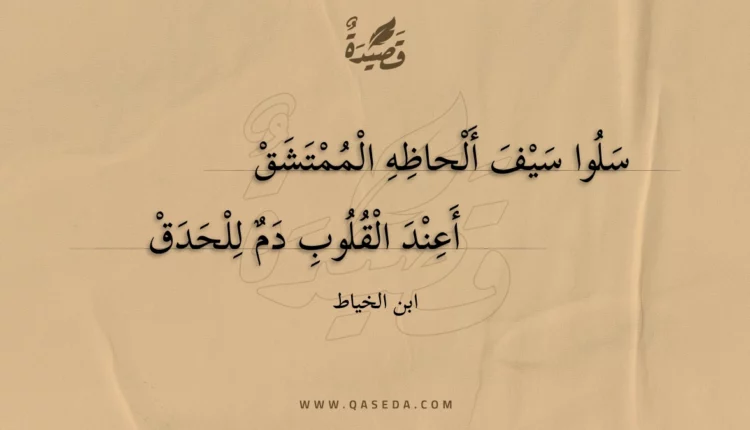 قَصِيدَةٌ
سَلُوا سَيْفَ أَلْحاظِهِ الْمُمْتَشَقْ
أَعِنْدَ الْقُلُوبِ دَمٌ لِلْحَدَقْ
ابن الخياط
WWW.QASEDA.COM